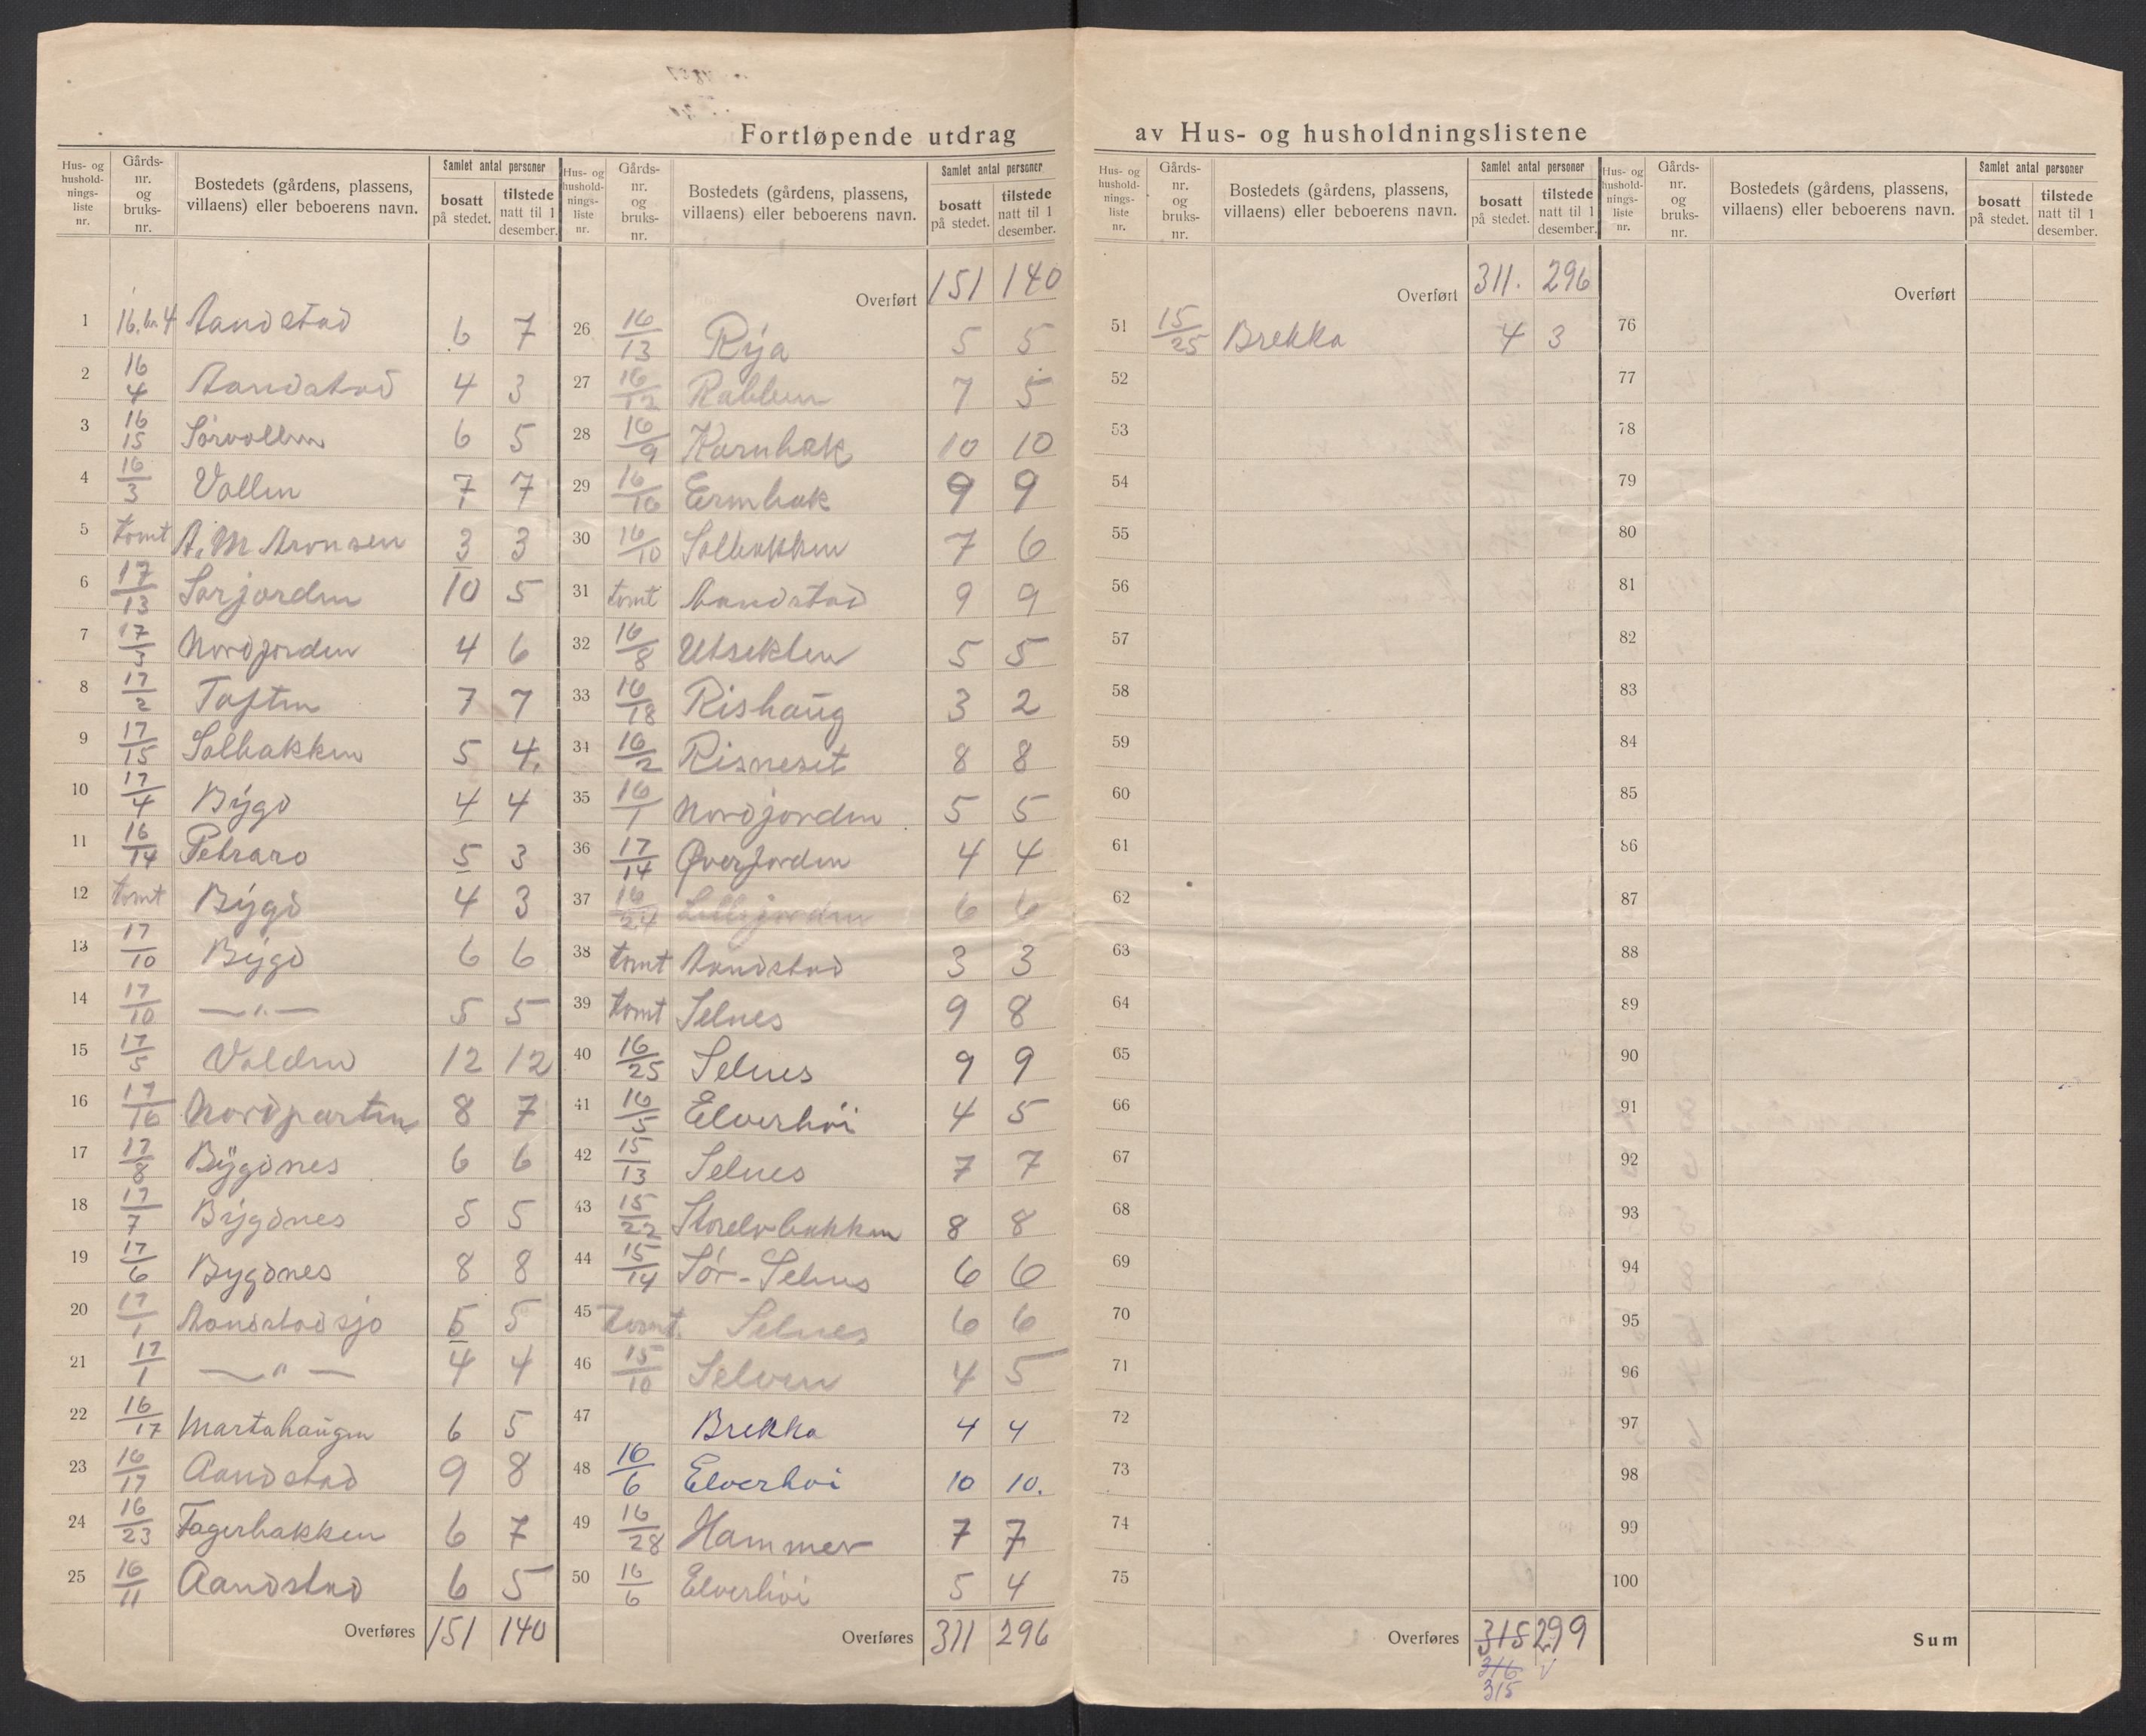 Fortløpende utdrag av Hus- og husholdningslistene
Hus- og husholdningsliste nr. | Gårdsnr. og bruksnr. | Bostedets (gårdens, plassens, villaens) eller beboerens navn. | Samlet antal personer bosatt på stedet. | tilstede natt til 1 desember.
1 16, bn 4 Aandstad 6 7
2 16/4 Aandstad 4 3
3 16/15 Sørvollen 6 5
4 16/3 Vollen 7 7
5 tomt A. M Aronsen 3 3
6 17/13 Sørjorden 10 5
7 17/3 Nordjorden 4 6
8 17/2 Toften 7 7
9 17/15 Solbakken 5 4
10 17/4 Bygd 4 4
11 16/14 Petraro 5 3
12 tomt Bygd 4 3
13 17/10 Bygd 6 6
14 17/10 — " — 5 5
15 17/5 Volden 12 12
16 17/16 Nordparten 8 7
17 17/8 Bygdnes 6 6
18 17/7 Bygdnes 5 5
19 17/6 Bygdnes 8 8
20 17/1 Aandstadsjo 5 5
21 17/1 — " — 4 4
22 16/17 Martahaugen 6 5
23 16/17 Aandstad 9 8
24 16/23 Fagerbakken 6 7
25 16/11 Aandstad 6 5
Overføres 151 140
Hus- og husholdningsliste nr. | Gårdsnr. og bruksnr. | Bostedets (gårdens, plassens, villaens) eller beboerens navn. | Samlet antal personer bosatt på stedet. | tilstede natt til 1 desember.
Overført 151 140
26 16/13 Rya 5 5
27 16/12 Rabben 7 5
28 16/9 Karnbæk 10 10
29 16/16 Ermbak 9 9
30 16/10 Solbakken 7 6
31 tomt Aandstad 9 9
32 16/8 Utsikten 5 5
33 16/18 Rishaug 3 2
34 16/2 Risneset 8 8
35 16/1 Nordjorden 5 5
36 17/14 Øverjorden 4 4
37 16/24 Lillejorden 6 6
38 tomt Aandstad 3 3
39 tomt Selnes 9 8
40 16/25 Selnes 9 9
41 16/5 Elverhöi 4 5
42 15/13 Selnes 7 7
43 15/22 Storelvbakken 8 8
44 15/14 Sør-Selnes 6 6
45 Tomt. Selnes 6 6
46 15/10 Selven 4 5
47 Brekka 4 4
48 16/6 Elverhoi 10 10.
49 16/28 Hammer 7 7
50 16/6 Elverhöi 5 4
Overføres 311 296
Hus- og husholdningsliste nr. | Gårdsnr. og bruksnr. | Bostedets (gårdens, plassens, villaens) eller beboerens navn. | Samlet antal personer bosatt på stedet. | tilstede natt til 1 desember.
Overført 311. 296
51 15/25 Brekka 4 3
52
53
54
55
56
57
58
59
60
61
62
63
64
65
66
67
68
69
70
71
72
73
74
75
Overføres 315 299
316 v
315
Hus- og husholdningsliste nr. | Gårdsnr. og bruksnr. | Bostedets (gårdens, plassens, villaens) eller beboerens navn. | Samlet antal personer bosatt på stedet. | tilstede natt til 1 desember.
Overført
76
77
78
79
80
81
82
83
84
85
86
87
88
89
90
91
92
93
94
95
96
97
98
99
100
Sum